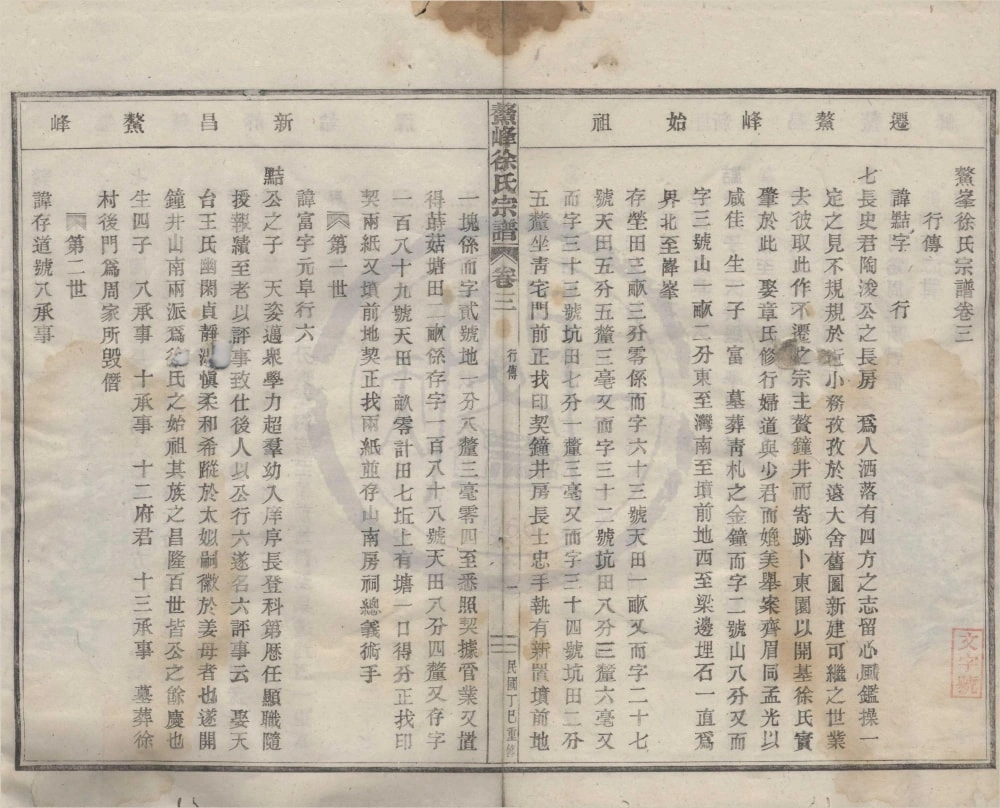 遷鰲峰始祖
鰲峯徐氏宗譜卷三
行傳
諱點字　行
七長史君陶浚公之長房　爲人洒落有四方之志留心風鑑操一
定之見不規規於近小務孜孜於遠大舍舊圖新建可繼之世業
去彼取此作不遷之宗主贅鐘井而寄跡卜東園以開基徐氏實
肇於此　娶章氏修行婦道與少君而媲美舉案齊眉同孟光以
咸佳　生一子　富　墓葬靑札之金鐘而字二號山八分又而
字三號山十畝二分東至灣南至墳前地西至梁邊埋石一直爲
界北至峰峯
存塋田三畝三分零係而字六十三號天田一畝又而字二十七
號天田五分五釐三毫又而字三十二號坑田八分三釐六毫又
而字三十三號坑田七分一釐三毫又而字三十四號坑田二分
五釐坐靑宅門前正找印契鐘井房長士忠手執有新置墳前地
鰲峰徐氏宗譜　卷三　行傳　一　民國丁巳重修
新昌鰲峰
一塊係而字貳號地一分八釐三毫零四至悉照契據管業又置
得蒔菇塘田二畝係存字一百八十八號天田八分四釐又存字
一百八十九號天田一畝零計田七坵上有塘一口得分正找印
契兩紙又墳前地契正找兩紙並存山南房祠總義術手
第一世
諱富字元阜行六
點公之子　天姿邁衆學力超羣幼入庠序長登科第歷任顯職隨
授報績至老以評事致仕後人以公行六遂名六評事云　娶天
台王氏幽閑貞靜淑愼柔和希蹤於太姒嗣徽於姜母者也遂開
鐘井山南兩派爲徐氏之始祖其族之昌隆百世皆公之餘慶也
生四子　八承事　十承事　十二府君　十三承事　墓葬徐
村後門爲周家所毀僭
第二世
諱存道號八承事
文字號